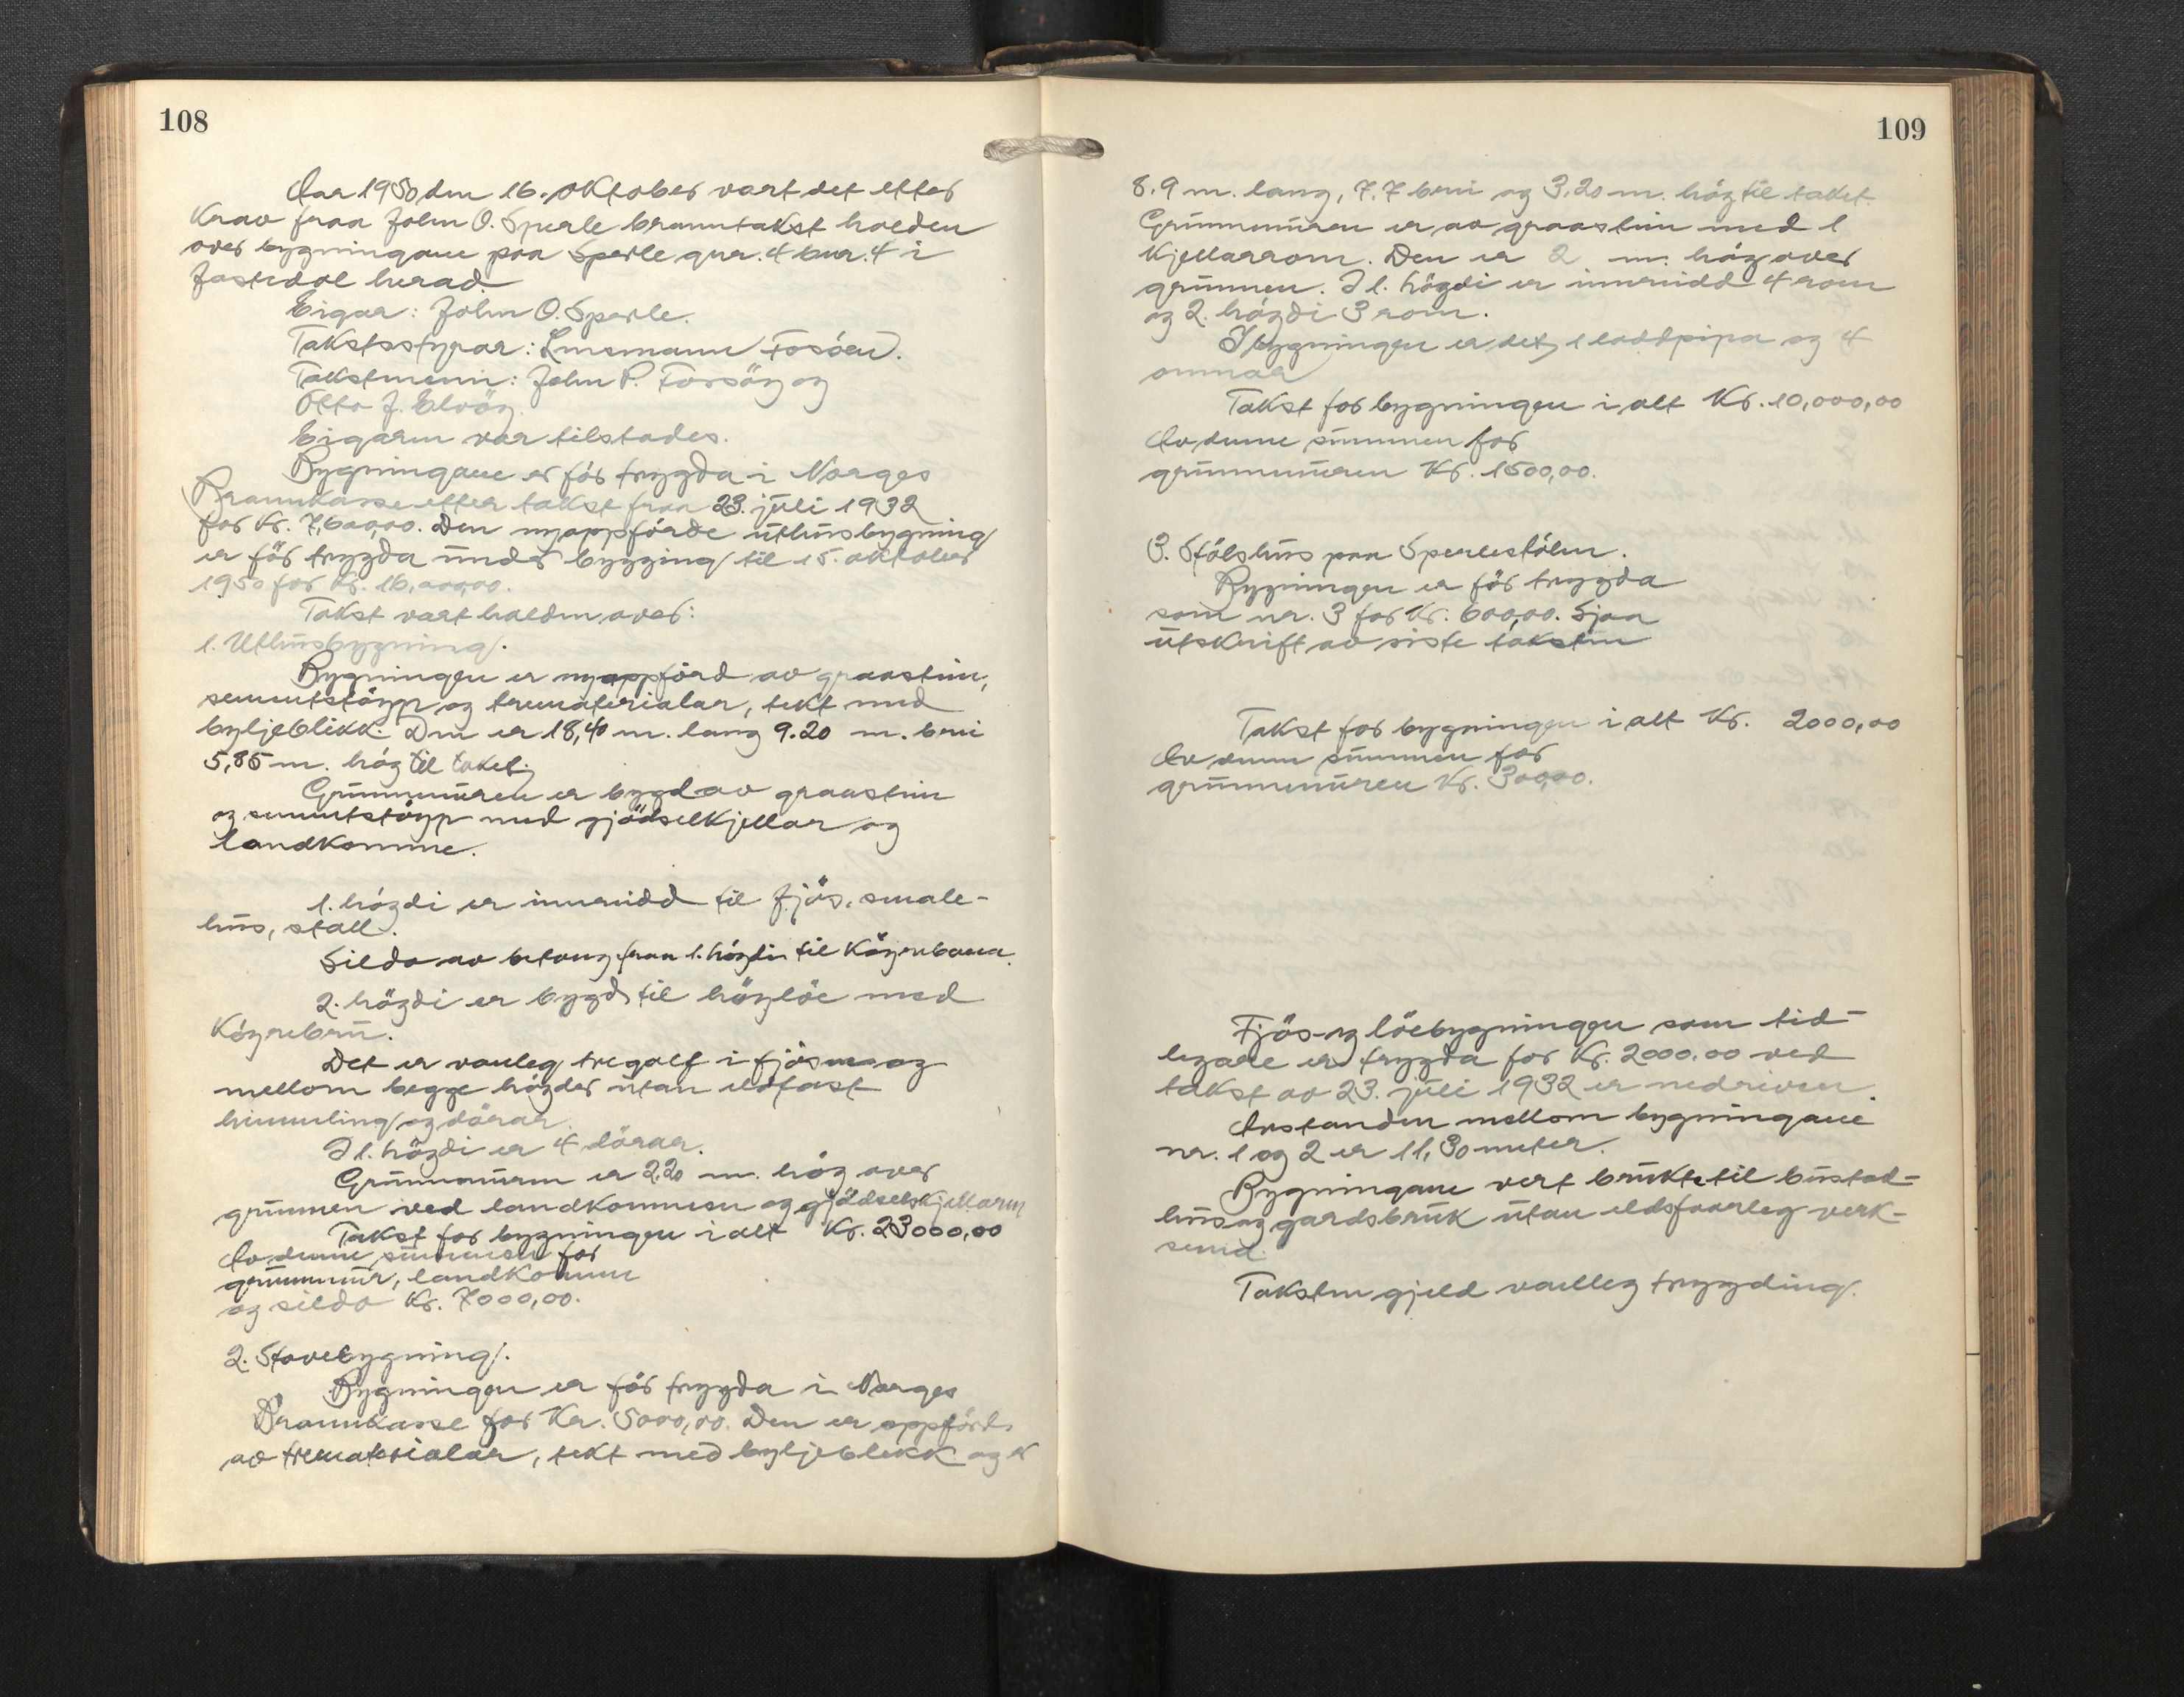 108
Aar 1950 den 16. oktober vart det etter
Krav fraa John O. Sperle branntakst halden
over bygningane paa Sperle gnr. 4 bnr. 4 i
Jostedal herad.
Eigar: John O. Sperle.
Takstsstyrar: Lensmann Fosöen.
Takstmenn: John P. Forsöy og
Otto J. Elvöy.
Eigaren var tilstades.
Bygningane er för trygda i Norges
Brannkasse etter takst fraa 23. juli 1932
for Kr. 7,600,00. Den nyoppförde uthusbygning
er för trygda under bygging til 15. oktober
1950 for Kr. 16,000,00.
Takst vart halden over:
1. Uthusbygning.
Bygningen er nyoppförd av graastein,
sementstöyp og trematerialar, tekt med
byljeblikk. Den er 18,40 m. lang 9.20 m. brei
5,85 m. höy til taket.
Grunnmuren er bygd av graastein
og sementstöyp med gjödselkjellar og
landkomme.
1. högdi er innreidd til fjös, smale-
hus, stall.
Silo av betong fraa 1. högdi til Köyrebana.
2. högdi er bygd til höylöe med
Köyrebru.
Det er vanleg tregolf i fjösen og
mellom begge högder utan eldfast
himmling og dörar.
I 1. högdi er 4 dörar.
Grunnmuren er 2,20 m. höy over
grunnen ved landkommen og gjödselskjellaren
Takst for bygningen i alt Kr. 23000,00
Av denne summen for
grunnmur, landkomme
og silo Kr. 7000,00.
2. Stovebygning.
Bygningen er för trygda i Norges
Brannkasse for Kr. 5000,00. Den er oppförd
av trematerialar, tekt med byljeblikk og er
109
8.9 m. lang, 7.7 brei og 3,20 m. höy til taket.
Grunnmuren er av graastein med 1
Kjellarrom. Den er 2 m. höy over
grunnen. I 1. högdi er innreidd 4 rom
og 2. högdi 3 rom.
I bygningen er det 1 loddpipa og 4
omnar
Takst for bygningen i alt Kr. 10,000,00
Av denne summen for
grunnmuren Kr. 1500,00.
3. Stölshus paa Sperlestölen.
Bygningen er för trygda
som nr. 3 for Kr. 600,00. Sjaa
utskrift av siste taksten
Takst for bygningen i alt Kr. 2000,00
Av denne summen for
grunnmuren Kr. 300,00.
Fjös- og löebygningen som tid-
legare er trygda for Kr. 2000.00 ved
takst av 23. juli 1932 er nedriven.
Avstanden mellom bygningane
nr. 1 og 2 er 11,30 meter.
Bygningane vert brukte til bustad-
hus og gardsbruk utan eldsfaarleg verk-
semd.
Taksten gjeld vanleg trygding.